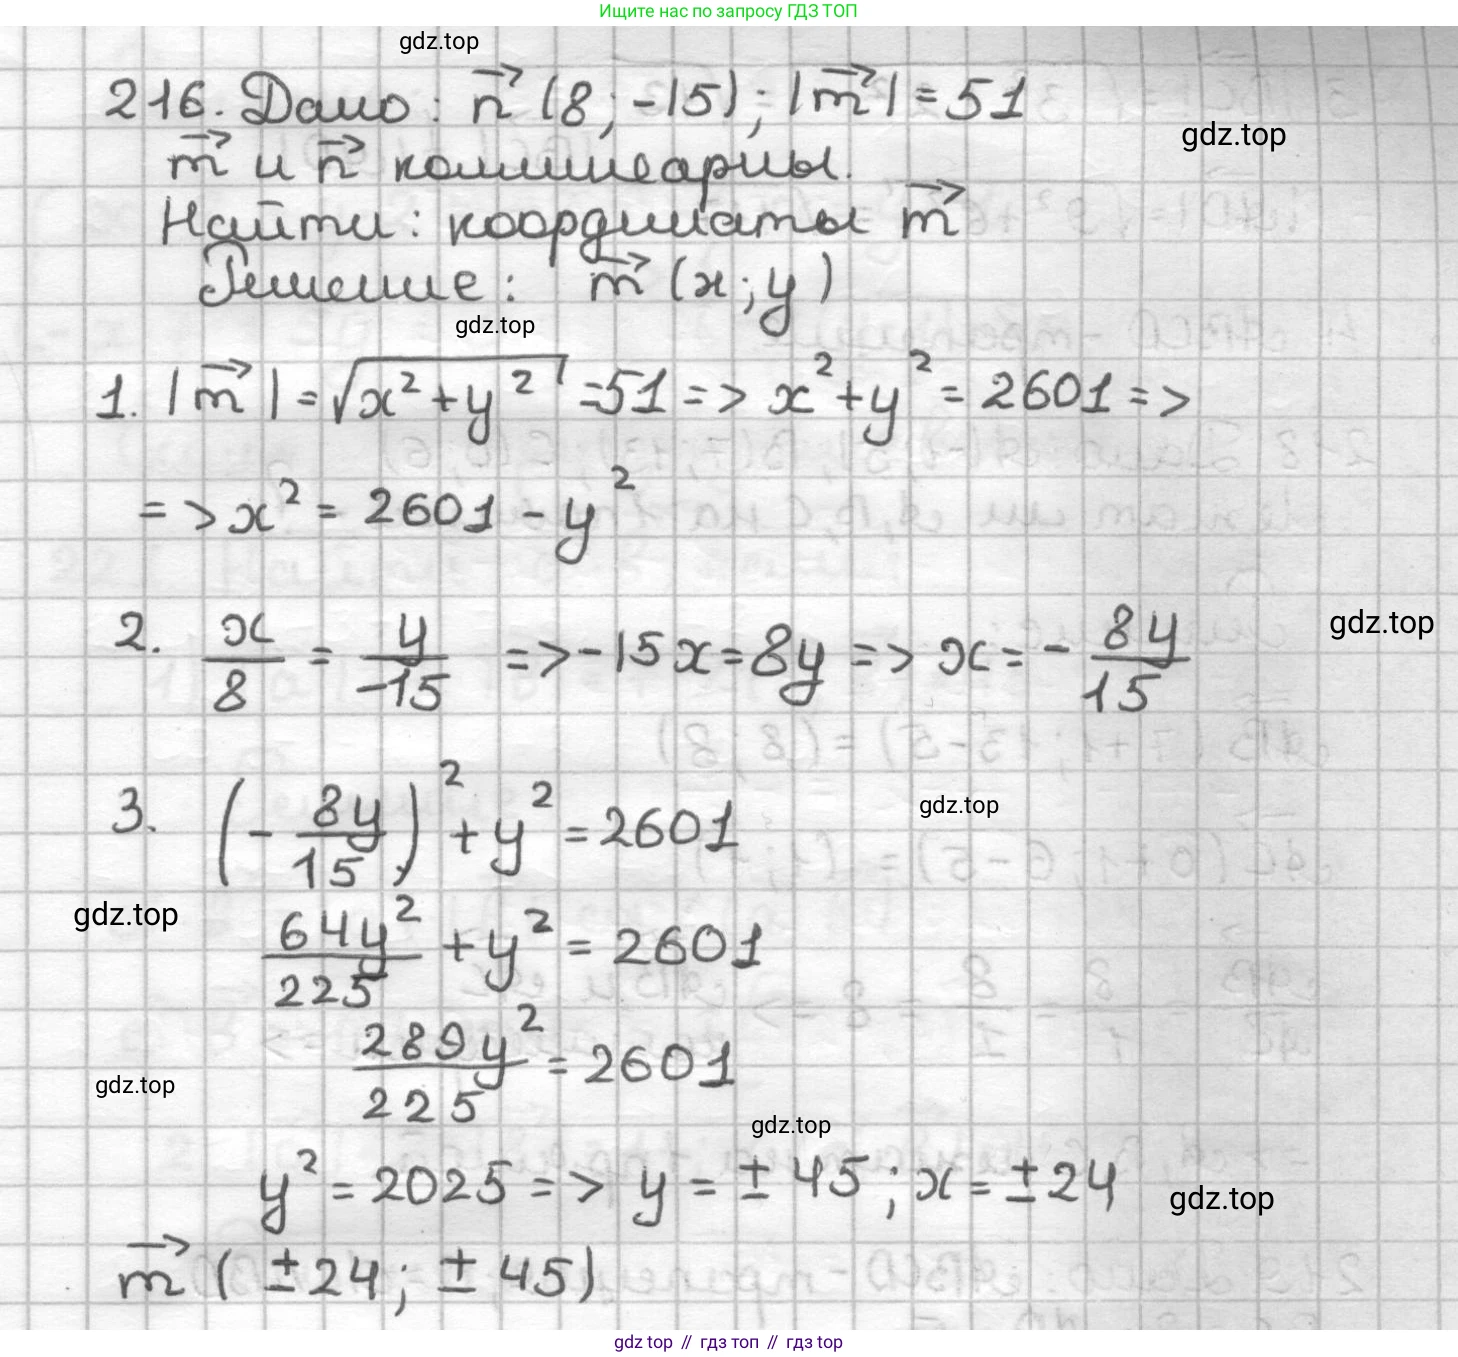 Ищите нас по запросу ГДЗ ТОП
gdz.top
216. Дано: n⃗ (8; -15); |m⃗| = 51
gdz.top
m⃗ и n⃗ коллинеарны.
Найти: координаты m⃗
Решение: m⃗ (x; y)
gdz.top
1. |m⃗| = √(x² + y²) = 51 => x² + y² = 2601 =>
=> x² = 2601 - y²
2. x/8 = y/-15 => -15x = 8y => x = - 8y/15
gdz.top
3. (- 8y/15)² + y² = 2601
gdz.top
64y²/225 + y² = 2601
gdz.top
289y²/225 = 2601
gdz.top
gdz.top
y² = 2025 => y = ± 45; x = ± 24
gdz.top
m⃗ (± 24; ± 45)
gdz.top // гдз топ // gdz.top